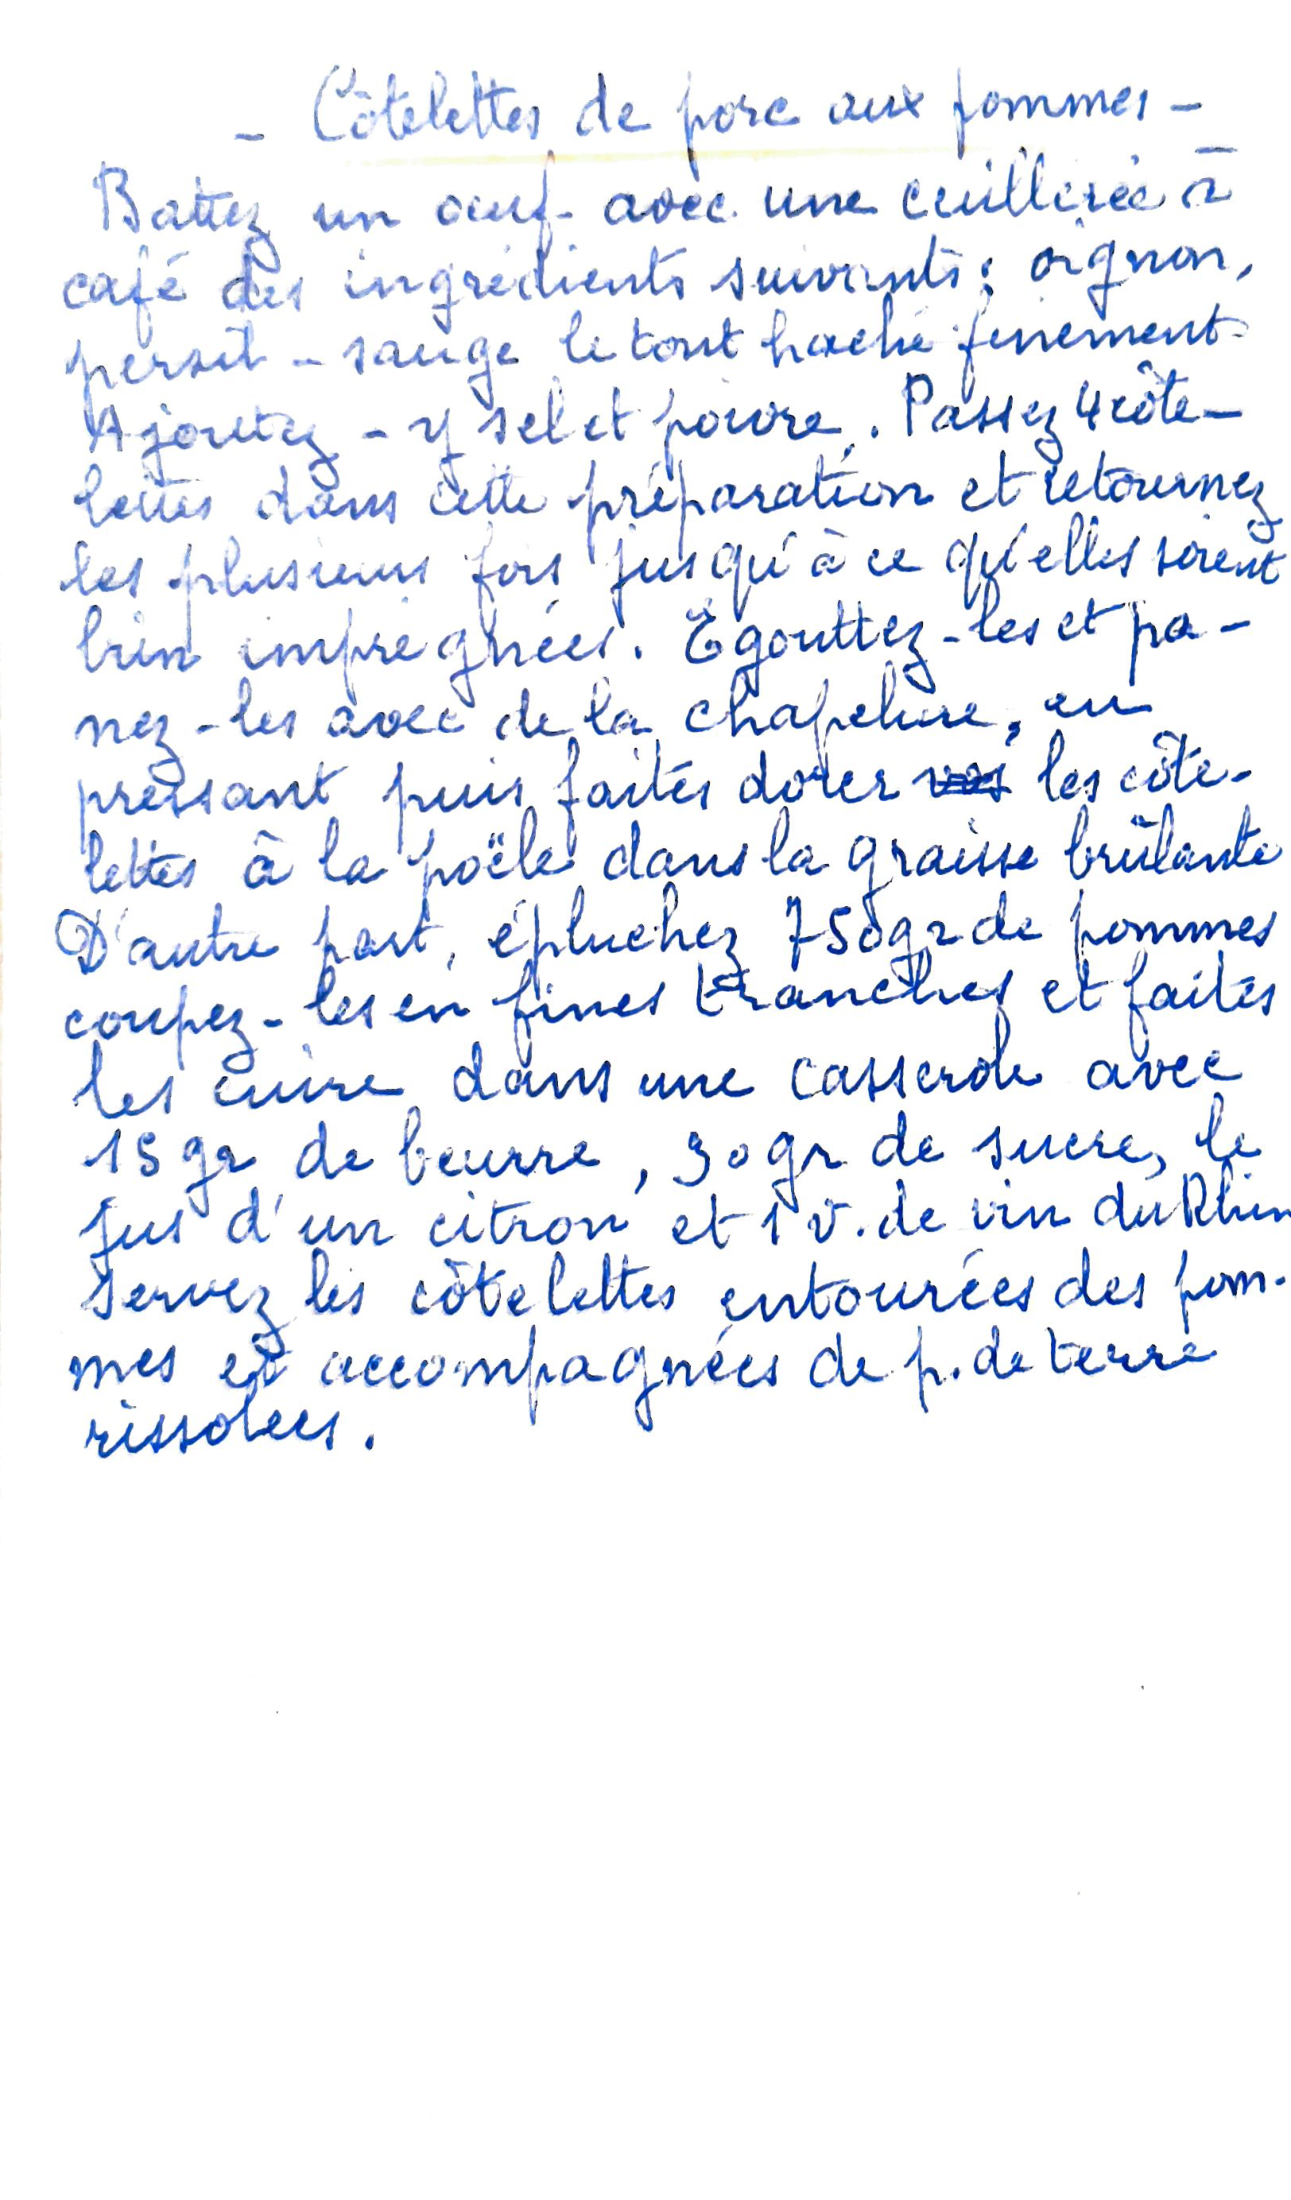 - Côtelettes de porc aux pommes -
Battez un oeuf avec une cuillerée à
café des ingrédients suivants : oignon,
persil - sauge le tout haché finement.
Ajoutez - y sel et poivre. Passez 4 côte-
lettes dans cette préparation et retournez
les plusieurs fois jusqu'à ce qu'elles soient
bien imprégnées. Egouttez-les et pa-
nez-les avec de la chapelure, en
pressant puis faites dorer vos les côte-
lettes à la poële dans la graisse brûlante
D'autre part, épluchez 750gr de pommes
coupez-les en fines tranches et faites
les cuire dans une casserole avec
15 gr de beurre, 30gr de sucre, le
jus d'un citron et 1 v. de vin du Rhin
servez les côtelettes entourées des pom-
mes et accompagnées de p. de terre
rissolées.